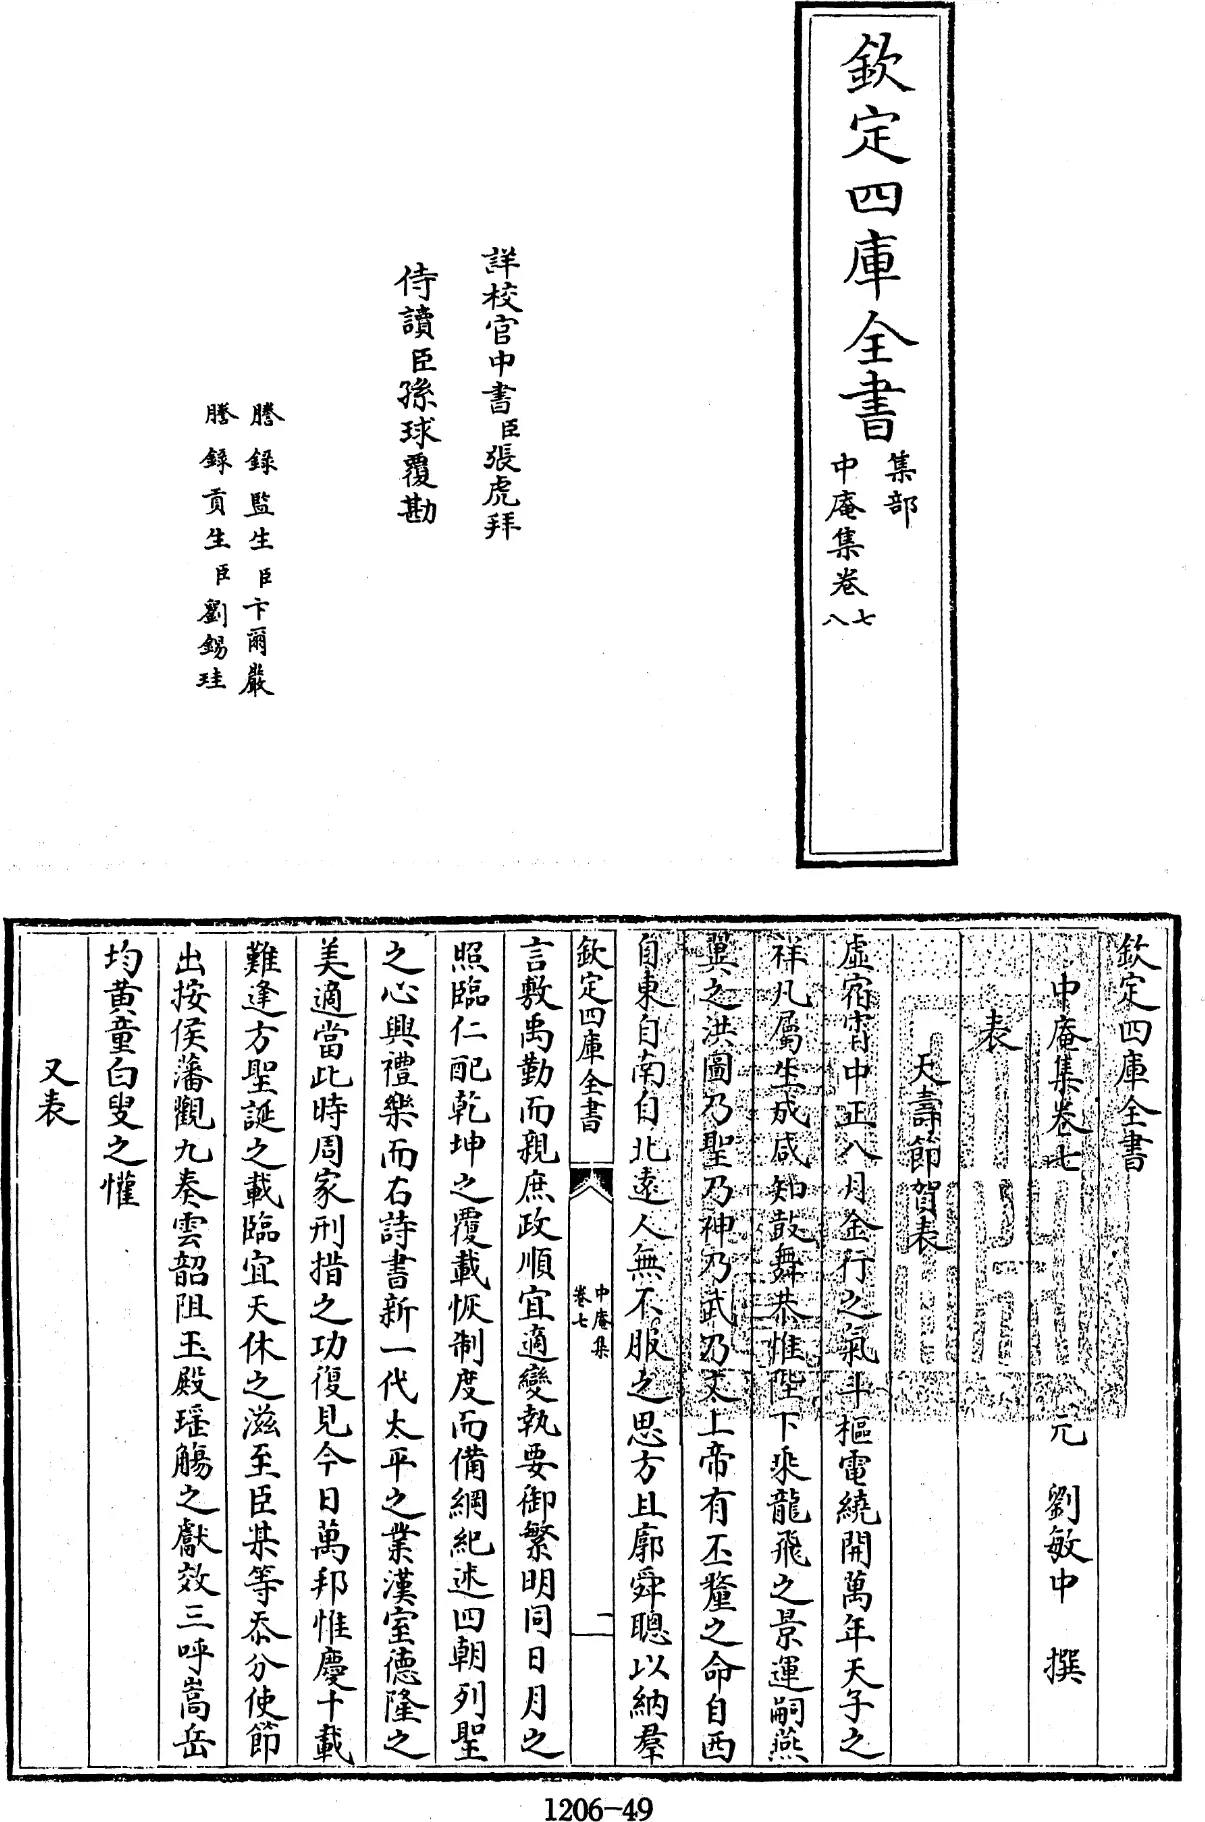 欽定四庫全書
集部
中庵集卷七
八
詳校官中書臣張虎拜
侍讀臣孫球覆勘
謄錄監生臣卞爾巖
謄錄貢生臣劉錫珪
欽定四庫全書
中庵集卷七
元 劉敏中 撰
表
天壽節賀表
虛宿宵中正八月金行之氣斗樞電繞開萬年天子之
祥凡屬生成咸知鼓舞恭惟陛下乘龍飛之景運嗣燕
翼之洪圖乃聖乃神乃武乃文上帝有丕釐之命自西
自東自南自北遠人無不服之思方且廓舜聰以納羣
欽定四庫全書
中庵集
卷七
一
言敷禹勤而親庶政順宜適變執要御繁明同日月之
照臨仁配乾坤之覆載恢制度而備綱紀述四朝列聖
之心興禮樂而右詩書新一代太平之業漢室德隆之
美適當此時周家刑措之功復見今日萬邦惟慶十載
難逢方聖誕之載臨宜天休之滋至臣某等忝分使節
出按侯藩觀九奏雲韶阻玉殿瑤觴之獻效三呼嵩岳
均黄童白叟之懽
又表
1206-49